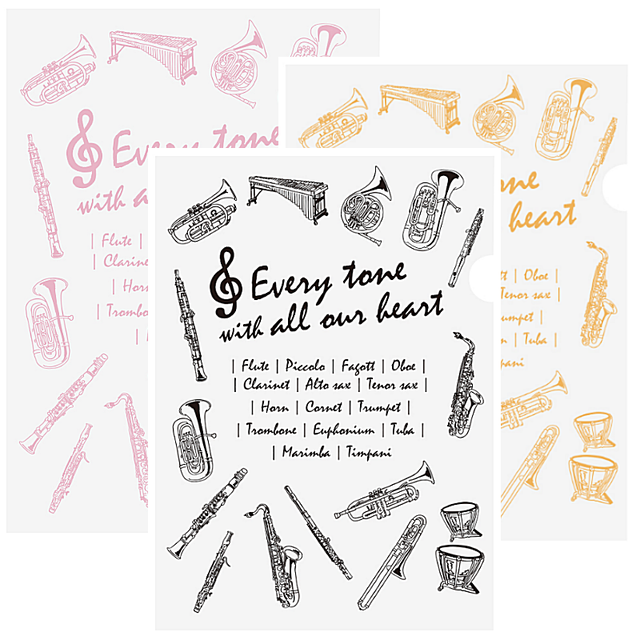 Every tone
with a
| Flute |
| Clarine
| Horn
| Trombo
one
heart
ott | Oboe |
Tenor sax |
umpet |
| Tuba |
mpani
Every tone
with all our heart
| Flute | Piccolo | Fagott | Oboe |
| Clarinet | Alto sax | Tenor sax |
| Horn | Cornet | Trumpet |
| Trombone | Euphonium | Tuba |
| Marimba | Timpani